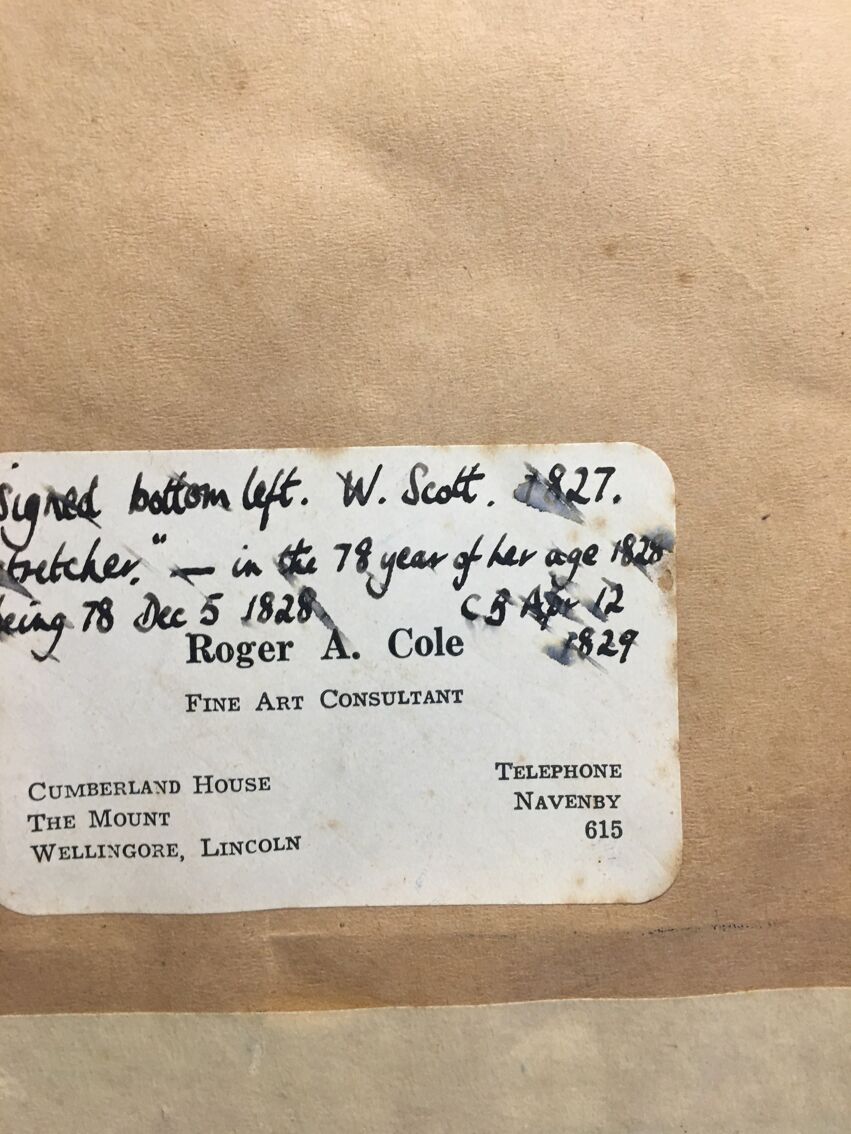 signed bottom left. W. Scott. 1827.
stretcher." — in the 78 year of her age 1828
being 78 Dec 5 1828 CB Apr 12
1829
Roger A. Cole
FINE ART CONSULTANT
CUMBERLAND HOUSE
THE MOUNT
WELLINGORE, LINCOLN
TELEPHONE
NAVENBY
615